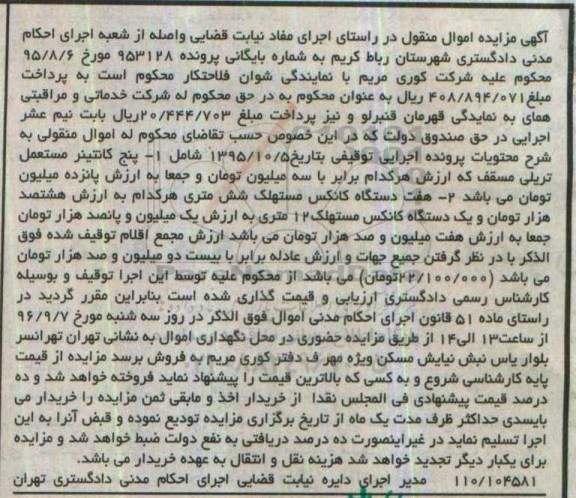 آگهی مزایده اموال منقول در راستای اجرای مفاد نیابت قضایی واصله از شعبه اجرای احکام
مدنی دادگستری شهرستان رباط کریم به شماره بایگانی پرونده ۹۵۳۱۲۸ مورخ ۹۵/۸/۶
محکوم علیه شرکت کوری مریم با نمایندگی شوان فلاحتکار محکوم است به پرداخت
مبلغ۴۰۸/۸۹۴/۰۷۱ ریال به عنوان محکوم به در حق محکوم له شرکت خدماتی و مراقبتی
همای به نمایدگی قهرمان قنبرلو و نیز پرداخت مبلغ ۲۰/۴۴۴/۷۰۳ریال بابت نیم عشر
اجرایی در حق صندوق دولت که در این خصوص حسب تقاضای محکوم له اموال منقولی به
شرح محتویات پرونده اجرایی توقیفی بتاریخ۱۳۹۵/۱۰/۵ شامل ۱- پنج کانتینر مستعمل
تریلی مسقف که ارزش هرکدام برابر با سه میلیون تومان و جمعا به ارزش پانزده میلیون
تومان می باشد ۲- هفت دستگاه کانکس مستهلک شش متری هرکدام به ارزش هشتصد
هزار تومان و یک دستگاه کانکس مستهلک۱۲ متری به ارزش یک میلیون و پانصد هزار تومان
جمعا به ارزش هفت میلیون و صد هزار تومان می باشد ارزش مجمع اقلام توقیف شده فوق
الذکر با در نظر گرفتن جمیع جهات و ارزش عادله برابر با بیست دو میلیون و صد هزار تومان
می باشد (۲۲/۱۰۰/۰۰۰تومان) می باشد از محکوم علیه توسط این اجرا توقیف و بوسیله
کارشناس رسمی دادگستری ارزیابی و قیمت گذاری شده است بنابراین مقرر گردید در
راستای ماده ۵۱ قانون اجرای احکام مدنی اموال فوق الذکر در روز سه شنبه مورخ ۹۶/۹/۷
از ساعت۱۳ الی۱۴ از طریق مزایده حضوری در محل نگهداری اموال به نشانی تهران تهرانسر
بلوار یاس نبش نیایش مسکن ویژه مهر ف دفتر کوری مریم به فروش برسد مزایده از قیمت
پایه کارشناسی شروع و به کسی که بالاترین قیمت را پیشنهاد نماید فروخته خواهد شد و ده
درصد قیمت پیشنهادی فی المجلس نقدا از خریدار اخذ و مابقی ثمن مزایده را خریدار می
بایسدی حداکثر ظرف مدت یک ماه از تاریخ برگزاری مزایده تودیع نموده و قبض آنرا به این
اجرا تسلیم نماید در غیراینصورت ده درصد دریافتی به نفع دولت ضبط خواهد شد و مزایده
برای یکبار دیگر تجدید خواهد شد هزینه نقل و انتقال به عهده خریدار می باشد.
۱۱۰/۱۰۴۵۸۱ مدیر اجرای دایره نیابت قضایی اجرای احکام مدنی دادگستری تهران